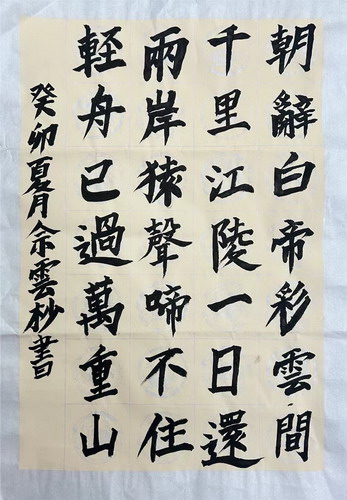 朝辭白帝彩雲間
千里江陵一日還
兩岸猿聲啼不住
輕舟已過萬重山
癸卯夏月余雲杪書